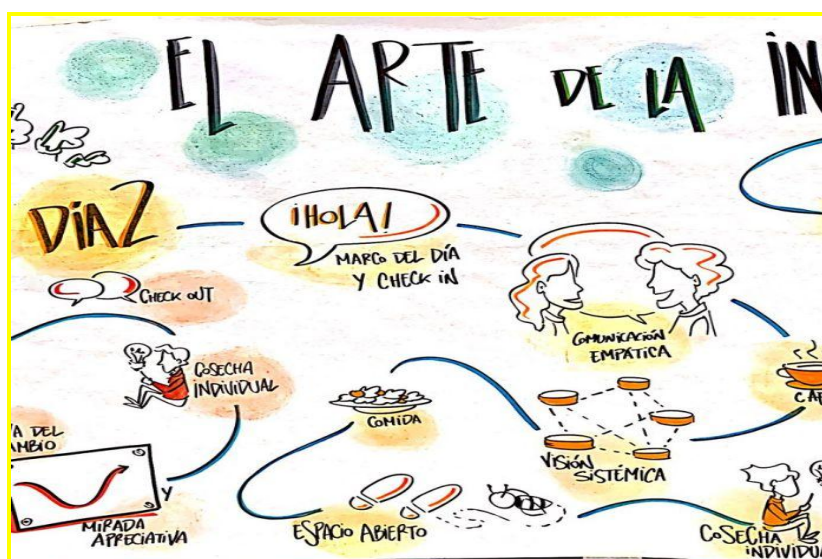 EL ARTE DE LA IN
DÍA2
¡HOLA!
MARCO DEL DÍA
Y CHECK IN
CHECK OUT
COMUNICACIÓN
EMPÁTICA
COSECHA
INDIVIDUAL
CAF
COMIDA
VISIÓN
SISTÉMICA
A DEL
MBIO
Y
MIRADA
APRECIATIVA
ESPACIO ABIERTO
COSECHA
INDIVIDU